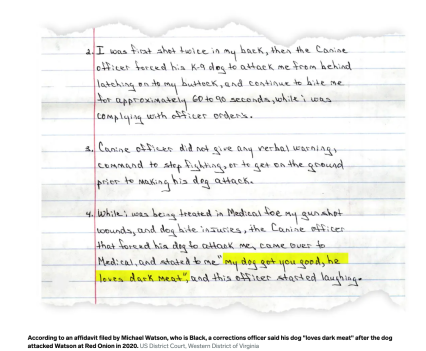 2. I was first shot twice in my back, then the Canine
officer forced his K-9 dog to attack me from behind
latching on to my buttock, and continue to bite me
for approximately 60 to 90 seconds, while i was
complying with officer orders.
3. Canine officer did not give any verbal warning,
command to stop fighting, or to get on the ground
prior to making his dog attack.
4. While i was being treated in Medical foe my gunshot
wounds, and dog bite injuries, the Canine officer
that forced his dog to attack me, came over to
Medical, and stated to me "my dog got you good, he
loves dark meat", and this officer started laughing.
According to an affidavit filed by Michael Watson, who is Black, a corrections officer said his dog "loves dark meat" after the dog
attacked Watson at Red Onion in 2020. US District Court, Western District of Virginia